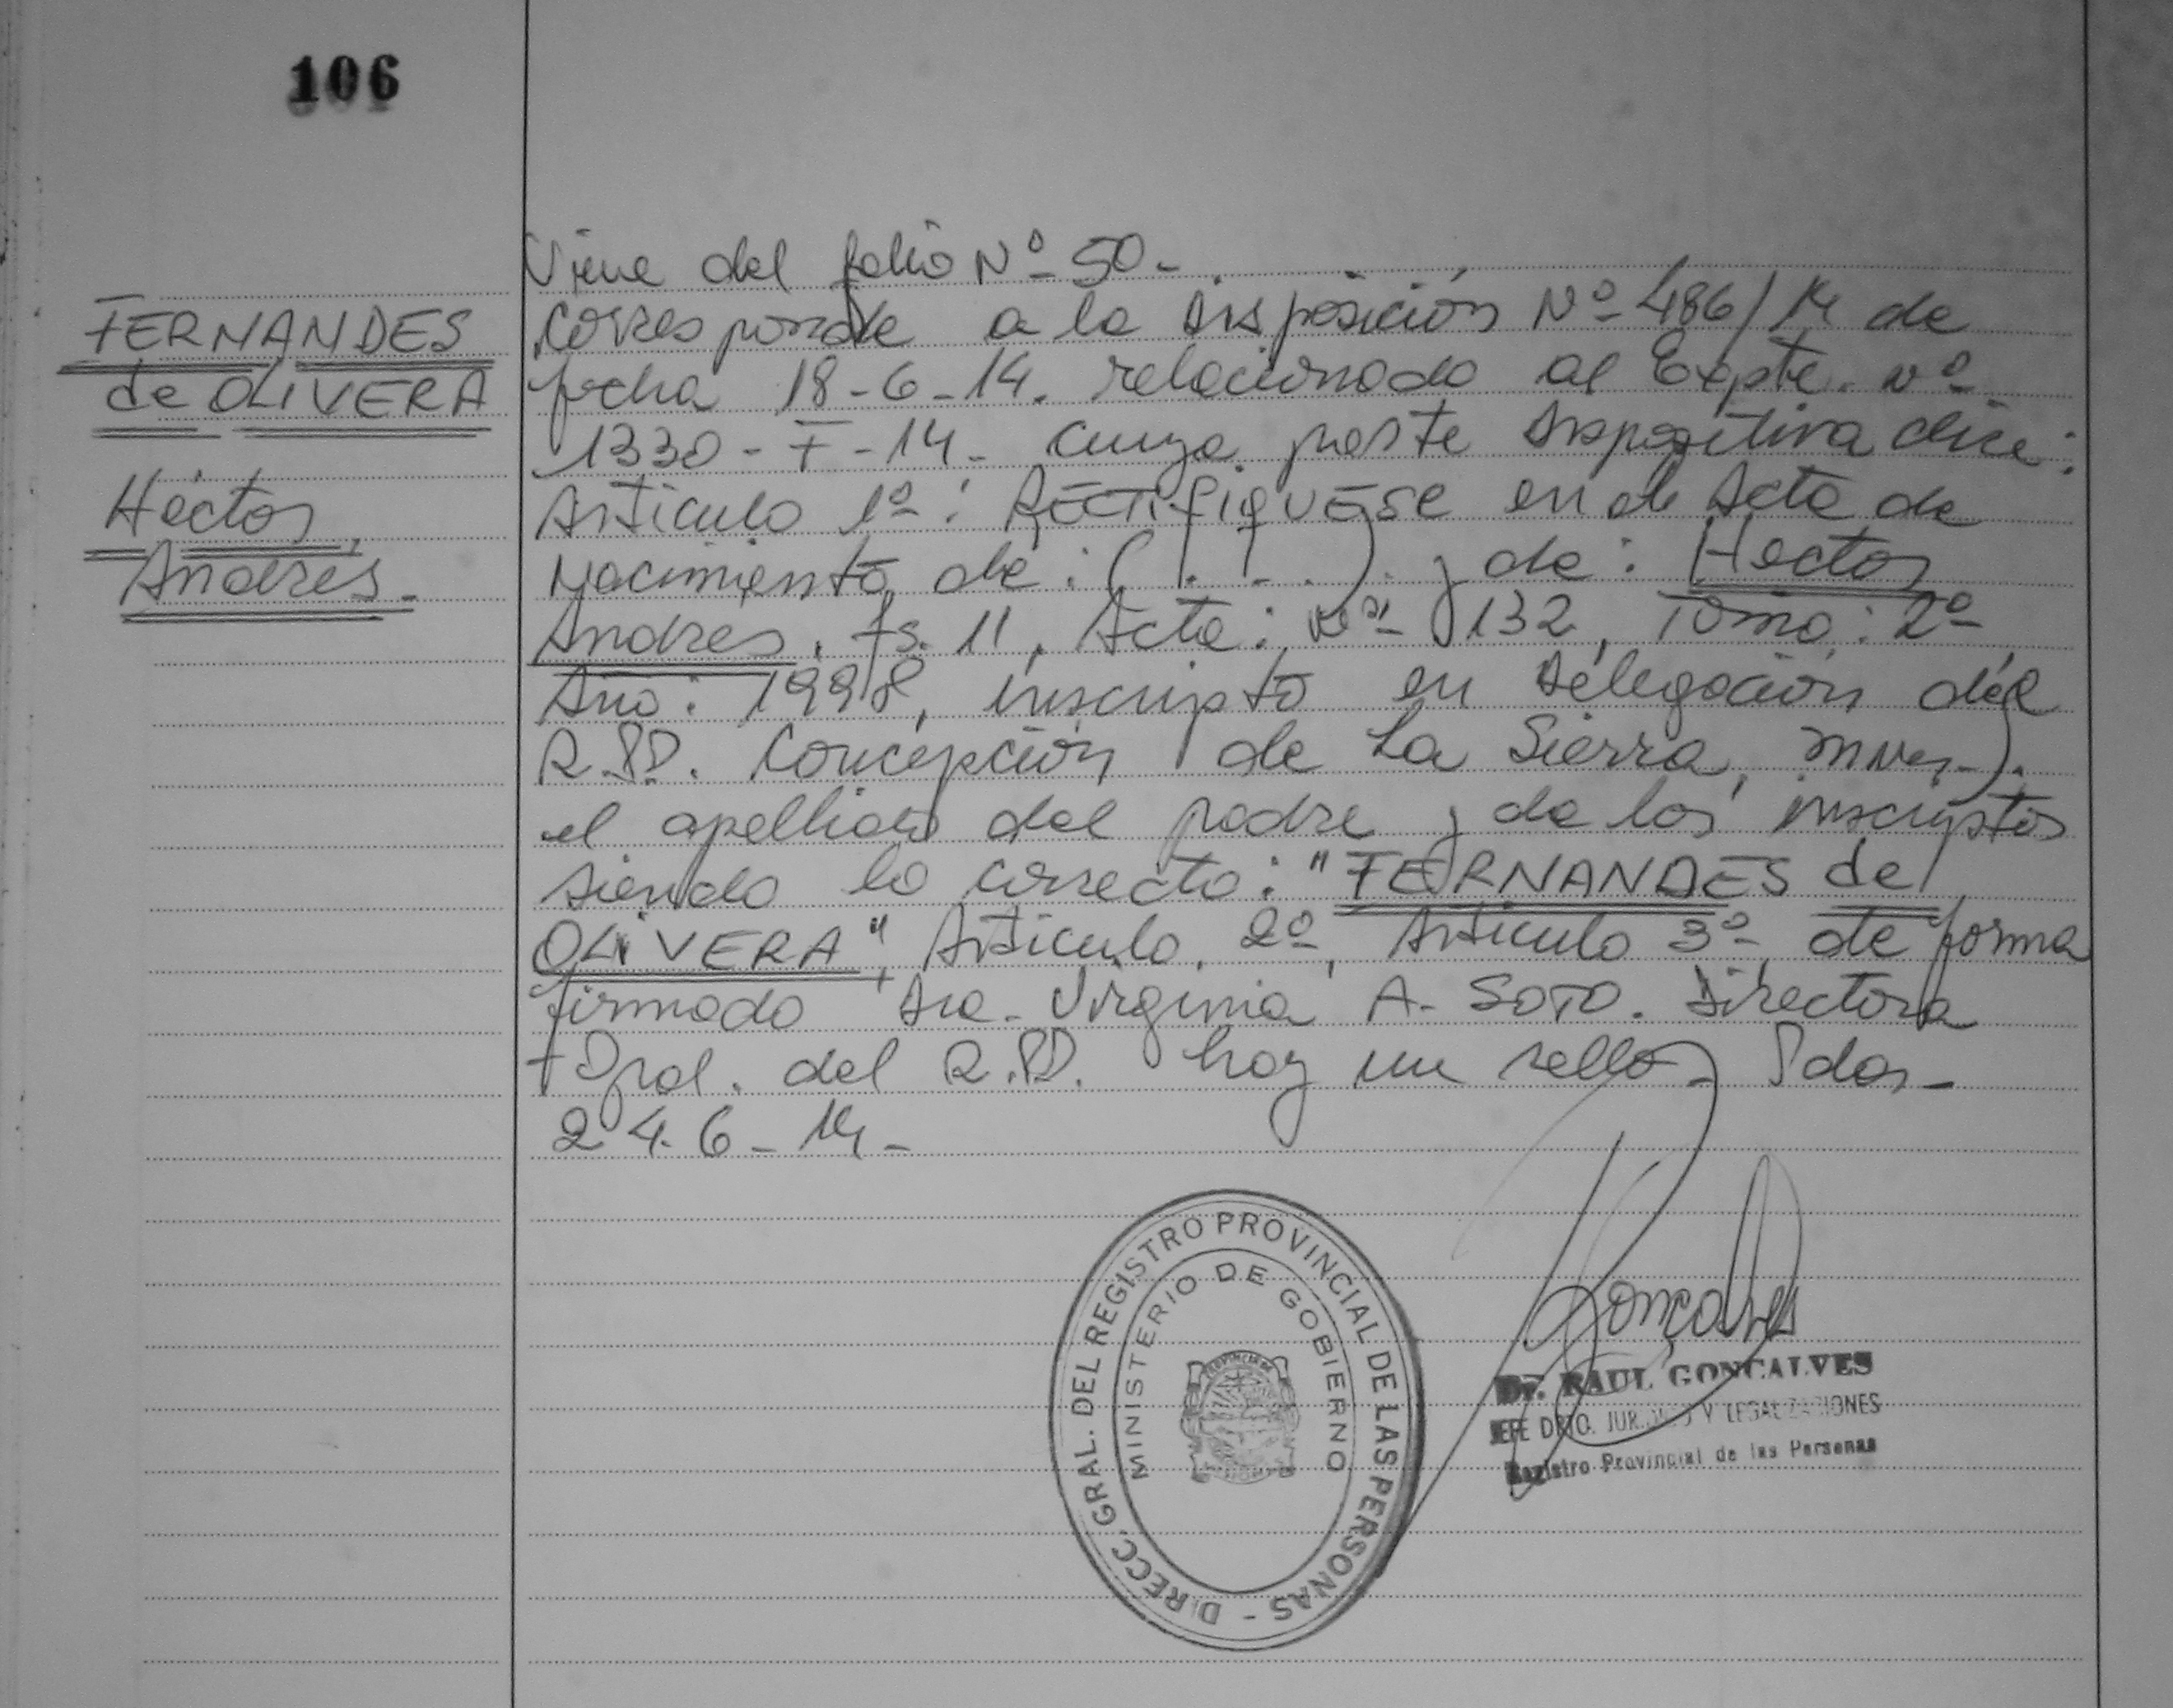 106
FERNANDES
de OLIVERA
Héctor,
Andrés.-
Viene del folio Nº 50-.
Corresponde a la Disposición Nº 486/14 de
fecha 18-6-14. relacionado al Expte. Nº
1330-F-14- cuya parte dispositiva dice:
Artículo 1º: RECTIFIQUESE en el Acta de
Nacimiento de: (. . . .). y de: Hector
Andres. Fs. 11, Acta: Nº 132, Tomo: 2º
Año: 1998, inscripto en Delegación del
R.P.P. Concepción de La Sierra, Mnes-).
el apellido del padre y de los inscriptos
siendo lo correcto: "FERNANDES de
OLIVERA", Artículo. 2º, Artículo 3º de forma
firmado Dra. Virginia A. SOTO. Directora
Gral. del R.P.P. hay un sello- Pdas-
24-6-14-
DIRECC. GRAL. DEL REGISTRO PROVINCIAL DE LAS PERSONAS -
MINISTERIO DE GOBIERNO
Gonçalves
Dr. RAUL GONCALVES
JEFE DPTO. JURIDICO Y LEGALIZACIONES
Registro Provincial de las Personas